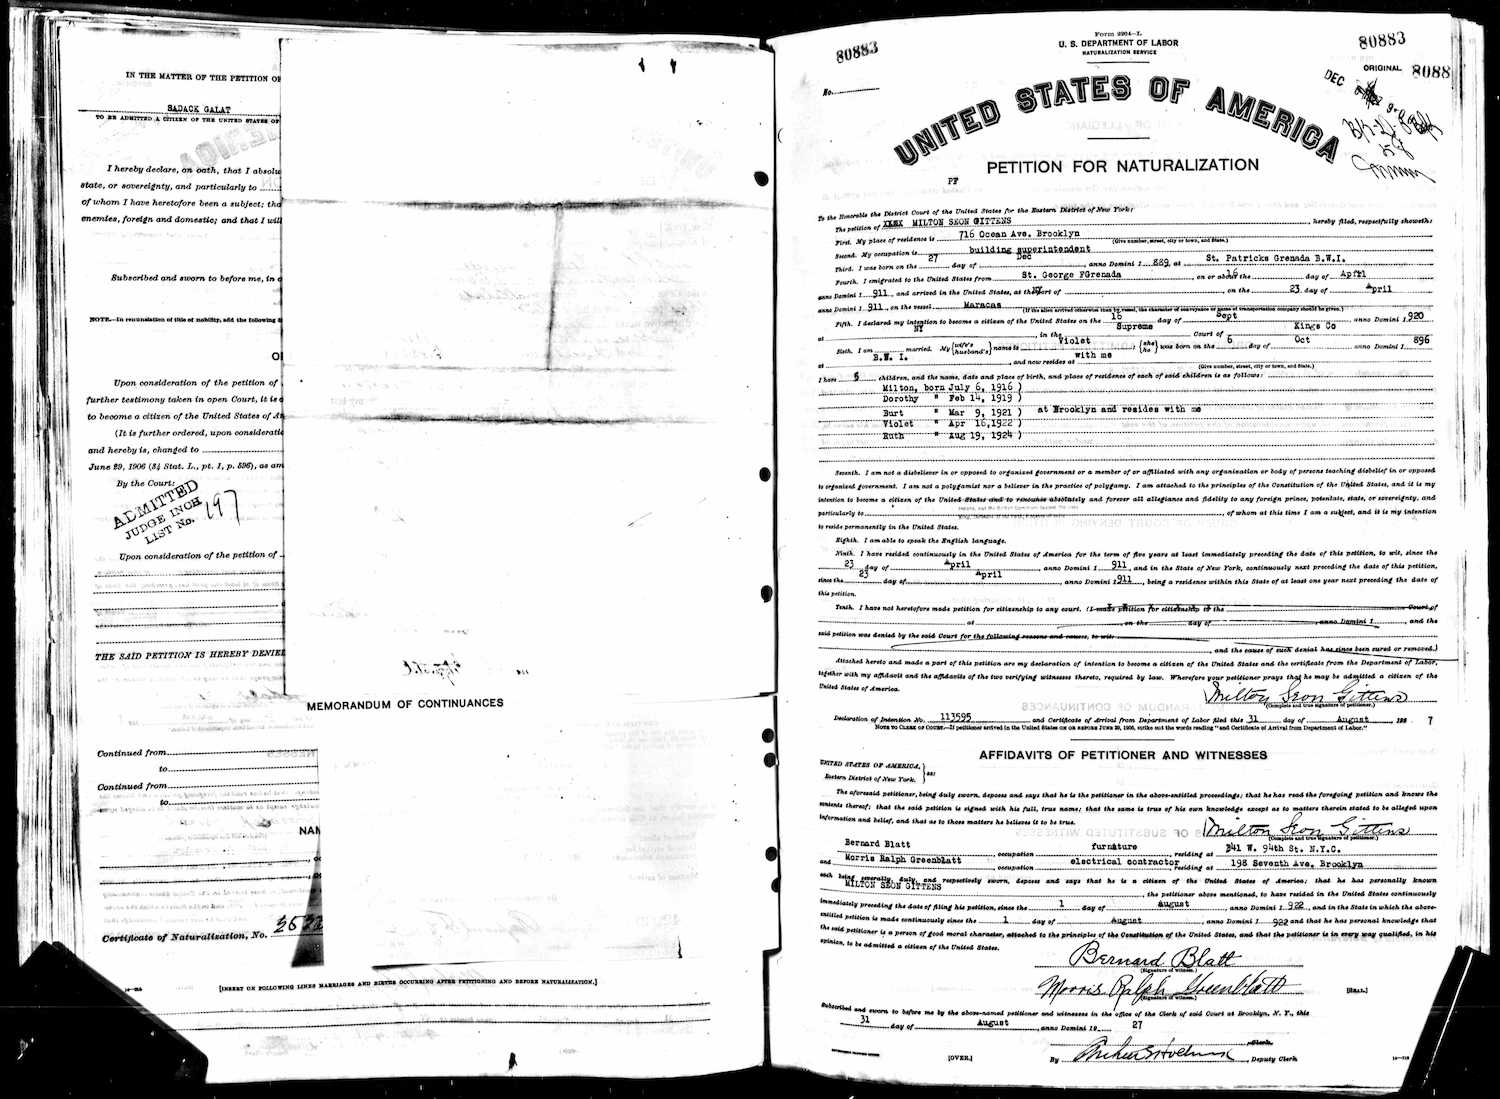 IN THE MATTER OF THE PETITION OF
SADACK GALAT
TO BE ADMITTED A CITIZEN OF THE UNITED STATES OF
I hereby declare, on oath, that I absolu
state, or sovereignty, and particularly to
of whom I have heretofore been a subject; tha
enemies, foreign and domestic; and that I will
Subscribed and sworn to before me, in
NOTE.—In renunciation of title of nobility, add the following
Upon consideration of the petition of
further testimony taken in open Court, it is
to become a citizen of the United States of Am
(It is further ordered, upon consideratio
and hereby is, changed to
June 29, 1906 (34 Stat. L., pt. 1, p. 596), as am
By the Court:
ADMITTED
JUDGE INCH
LIST No. 197
Upon consideration of the petition of
THE SAID PETITION IS HEREBY DENIED
MEMORANDUM OF CONTINUANCES
Continued from
to
Continued from
to
NAM
Certificate of Naturalization, No.
[INSERT ON FOLLOWING LINES MARRIAGES AND BIRTHS OCCURRING AFTER PETITIONING AND BEFORE NATURALIZATION.]
80883
Form 2204—L
U. S. DEPARTMENT OF LABOR
NATURALIZATION SERVICE
80883
ORIGINAL 8088
No.
DEC
UNITED STATES OF AMERICA
PETITION FOR NATURALIZATION
To the Honorable the District Court of the United States for the Eastern District of New York:
The petition of XXXX MILTON SEON GITTENS, hereby filed, respectfully showeth:
First. My place of residence is 716 Ocean Ave. Brooklyn
(Give number, street, city or town, and State.)
Second. My occupation is building superintendent
Third. I was born on the 27 day of Dec, anno Domini 1 889, at St. Patricks Grenada B.W.I.
Fourth. I emigrated to the United States from St. George FGrenada, on or about the 16 day of April
anno Domini 1 911, and arrived in the United States, at the port of NY, on the 23 day of April
anno Domini 1 911, on the vessel Maracas
(If the alien arrived otherwise than by vessel, the character of conveyance or name of transportation company should be given.)
Fifth. I declared my intention to become a citizen of the United States on the 16 day of Sept anno Domini 1 920
at NY, in the Supreme Court of Kings Co
Sixth. I am married. My {wife's husband's} name is Violet {she he} was born on the 6 day of Oct anno Domini 1 896
at B.W. I., and now resides at with me
(Give number, street, city or town, and State.)
I have 5 children, and the name, date and place of birth, and place of residence of each of said children is as follows:
Milton, born July 6, 1916 )
Dorothy " Feb 14, 1919 )
Burt " Mar 9, 1921 ) at Brooklyn and resides with me
Violet " Apr 16,1922 )
Ruth " Aug 19, 1924 )
Seventh. I am not a disbeliever in or opposed to organized government or a member of or affiliated with any organization or body of persons teaching disbelief in or opposed
to organized government. I am not a polygamist nor a believer in the practice of polygamy. I am attached to the principles of the Constitution of the United States, and it is my
intention to become a citizen of the United States and to renounce absolutely and forever all allegiance and fidelity to any foreign prince, potentate, state, or sovereignty, and
particularly to, of whom at this time I am a subject, and it is my intention
to reside permanently in the United States.
Eighth. I am able to speak the English language.
Ninth. I have resided continuously in the United States of America for the term of five years at least immediately preceding the date of this petition, to wit, since the
23 day of April, anno Domini 1 911, and in the State of New York, continuously next preceding the date of this petition,
since the 23 day of April, anno Domini 1 911, being a residence within this State of at least one year next preceding the date of
this petition.
Tenth. I have not heretofore made petition for citizenship to any court. (I made petition for citizenship to the Court of
at, on the day of, anno Domini 1, and the
said petition was denied by the said Court for the following reasons and causes, to wit
, and the cause of such denial has since been cured or removed.)
Attached hereto and made a part of this petition are my declaration of intention to become a citizen of the United States and the certificate from the Department of Labor,
together with my affidavit and the affidavits of the two verifying witnesses thereto, required by law. Wherefore your petitioner prays that he may be admitted a citizen of the
United States of America.
Milton Seon Gittens
(Complete and true signature of petitioner.)
Declaration of Intention No. 113595 and Certificate of Arrival from Department of Labor filed this 31 day of August, 192 7
NOTE TO CLERK OF COURT.—If petitioner arrived in the United States ON OR BEFORE JUNE 29, 1906, strike out the words reading "and Certificate of Arrival from Department of Labor."
AFFIDAVITS OF PETITIONER AND WITNESSES
UNITED STATES OF AMERICA,
Eastern District of New York. } ss:
The aforesaid petitioner, being duly sworn, deposes and says that he is the petitioner in the above-entitled proceedings; that he has read the foregoing petition and knows the
contents thereof; that the said petition is signed with his full, true name; that the same is true of his own knowledge except as to matters therein stated to be alleged upon
information and belief, and that as to those matters he believes it to be true.
Milton Seon Gittens
(Complete and true signature of petitioner.)
Bernard Blatt, occupation furnature, residing at 341 W. 94th St. N.Y.C.
and Morris Ralph Greenblatt, occupation electrical contractor, residing at 198 Seventh Ave. Brooklyn
each being severally, duly, and respectively sworn, deposes and says that he is a citizen of the United States of America; that he has personally known
MILTON SEON GITTENS, the petitioner above mentioned, to have resided in the United States continuously
immediately preceding the date of filing his petition, since the 1 day of August, anno Domini 1 922, and in the State in which the above-
entitled petition is made continuously since the 1 day of August, anno Domini 1 922 and that he has personal knowledge that
the said petitioner is a person of good moral character, attached to the principles of the Constitution of the United States, and that the petitioner is in every way qualified, in his
opinion, to be admitted a citizen of the United States.
Bernard Blatt
(Signature of witness.)
Morris Ralph Greenblatt
(Signature of witness.)
[SEAL.]
Subscribed and sworn to before me by the above-named petitioner and witnesses in the office of the Clerk of said Court at Brooklyn, N. Y., this
31 day of August, anno Domini 19 27
Clerk.
[OVER.]
By, Deputy Clerk